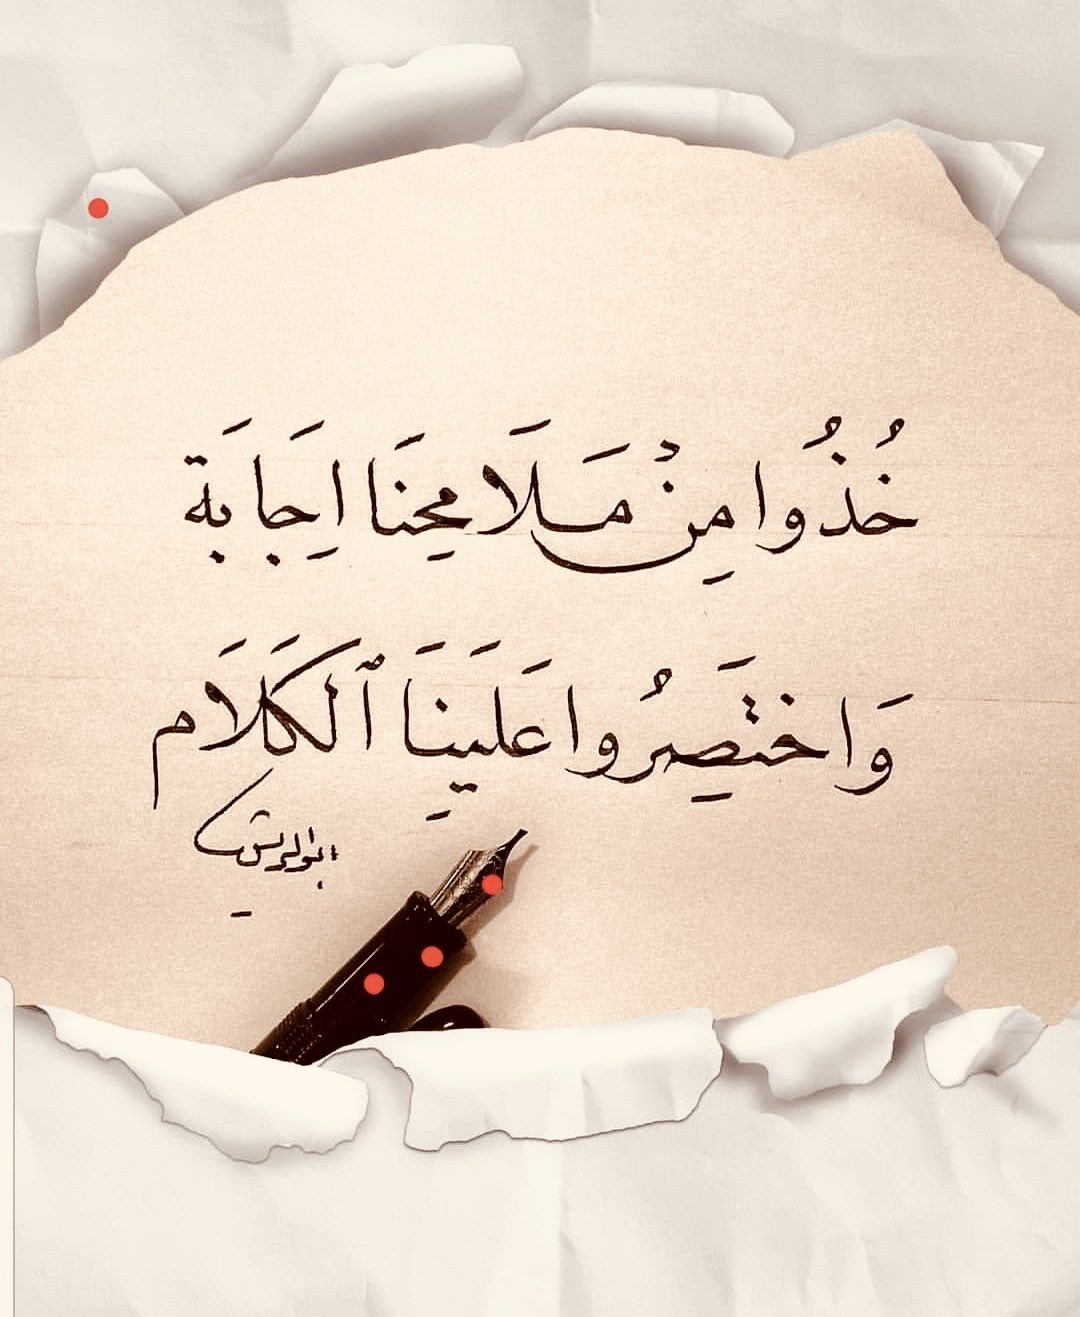 خُذُوا مِنْ مَلَامِحِنَا اِجَابَة
وَاختَصِرُوا عَلَينَا ٱلكَلَام